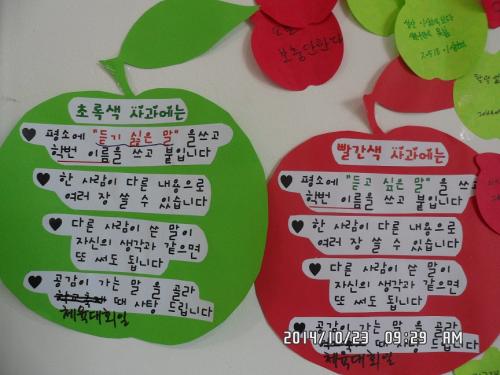 초록색 사과에는
♥ 평소에 "듣기 싫은 말"을 쓰고
학번 이름을 쓰고 붙입니다
♥ 한 사람이 다른 내용으로
여러 장 쓸 수 있습니다
♥ 다른 사람이 쓴 말이
자신의 생각과 같으면
또 써도 됩니다
♥ 공감이 가는 말을 골라
때 사탕 드립니다
체육대회일
보충한다
빨간색 사과에는
♥ 평소에 "듣고 싶은 말"을 쓰
학번 이름을 쓰고 붙입니다
♥ 한 사람이 다른 내용으로
여러 장 쓸 수 있습니다
♥ 다른 사람이 쓴 말이
자신의 생각과 같으면
또 써도 됩니다
♥ 공감이 가는 말을 골라
때 사탕 드립니다
체육대회일
2014/10/23 09:29 AM